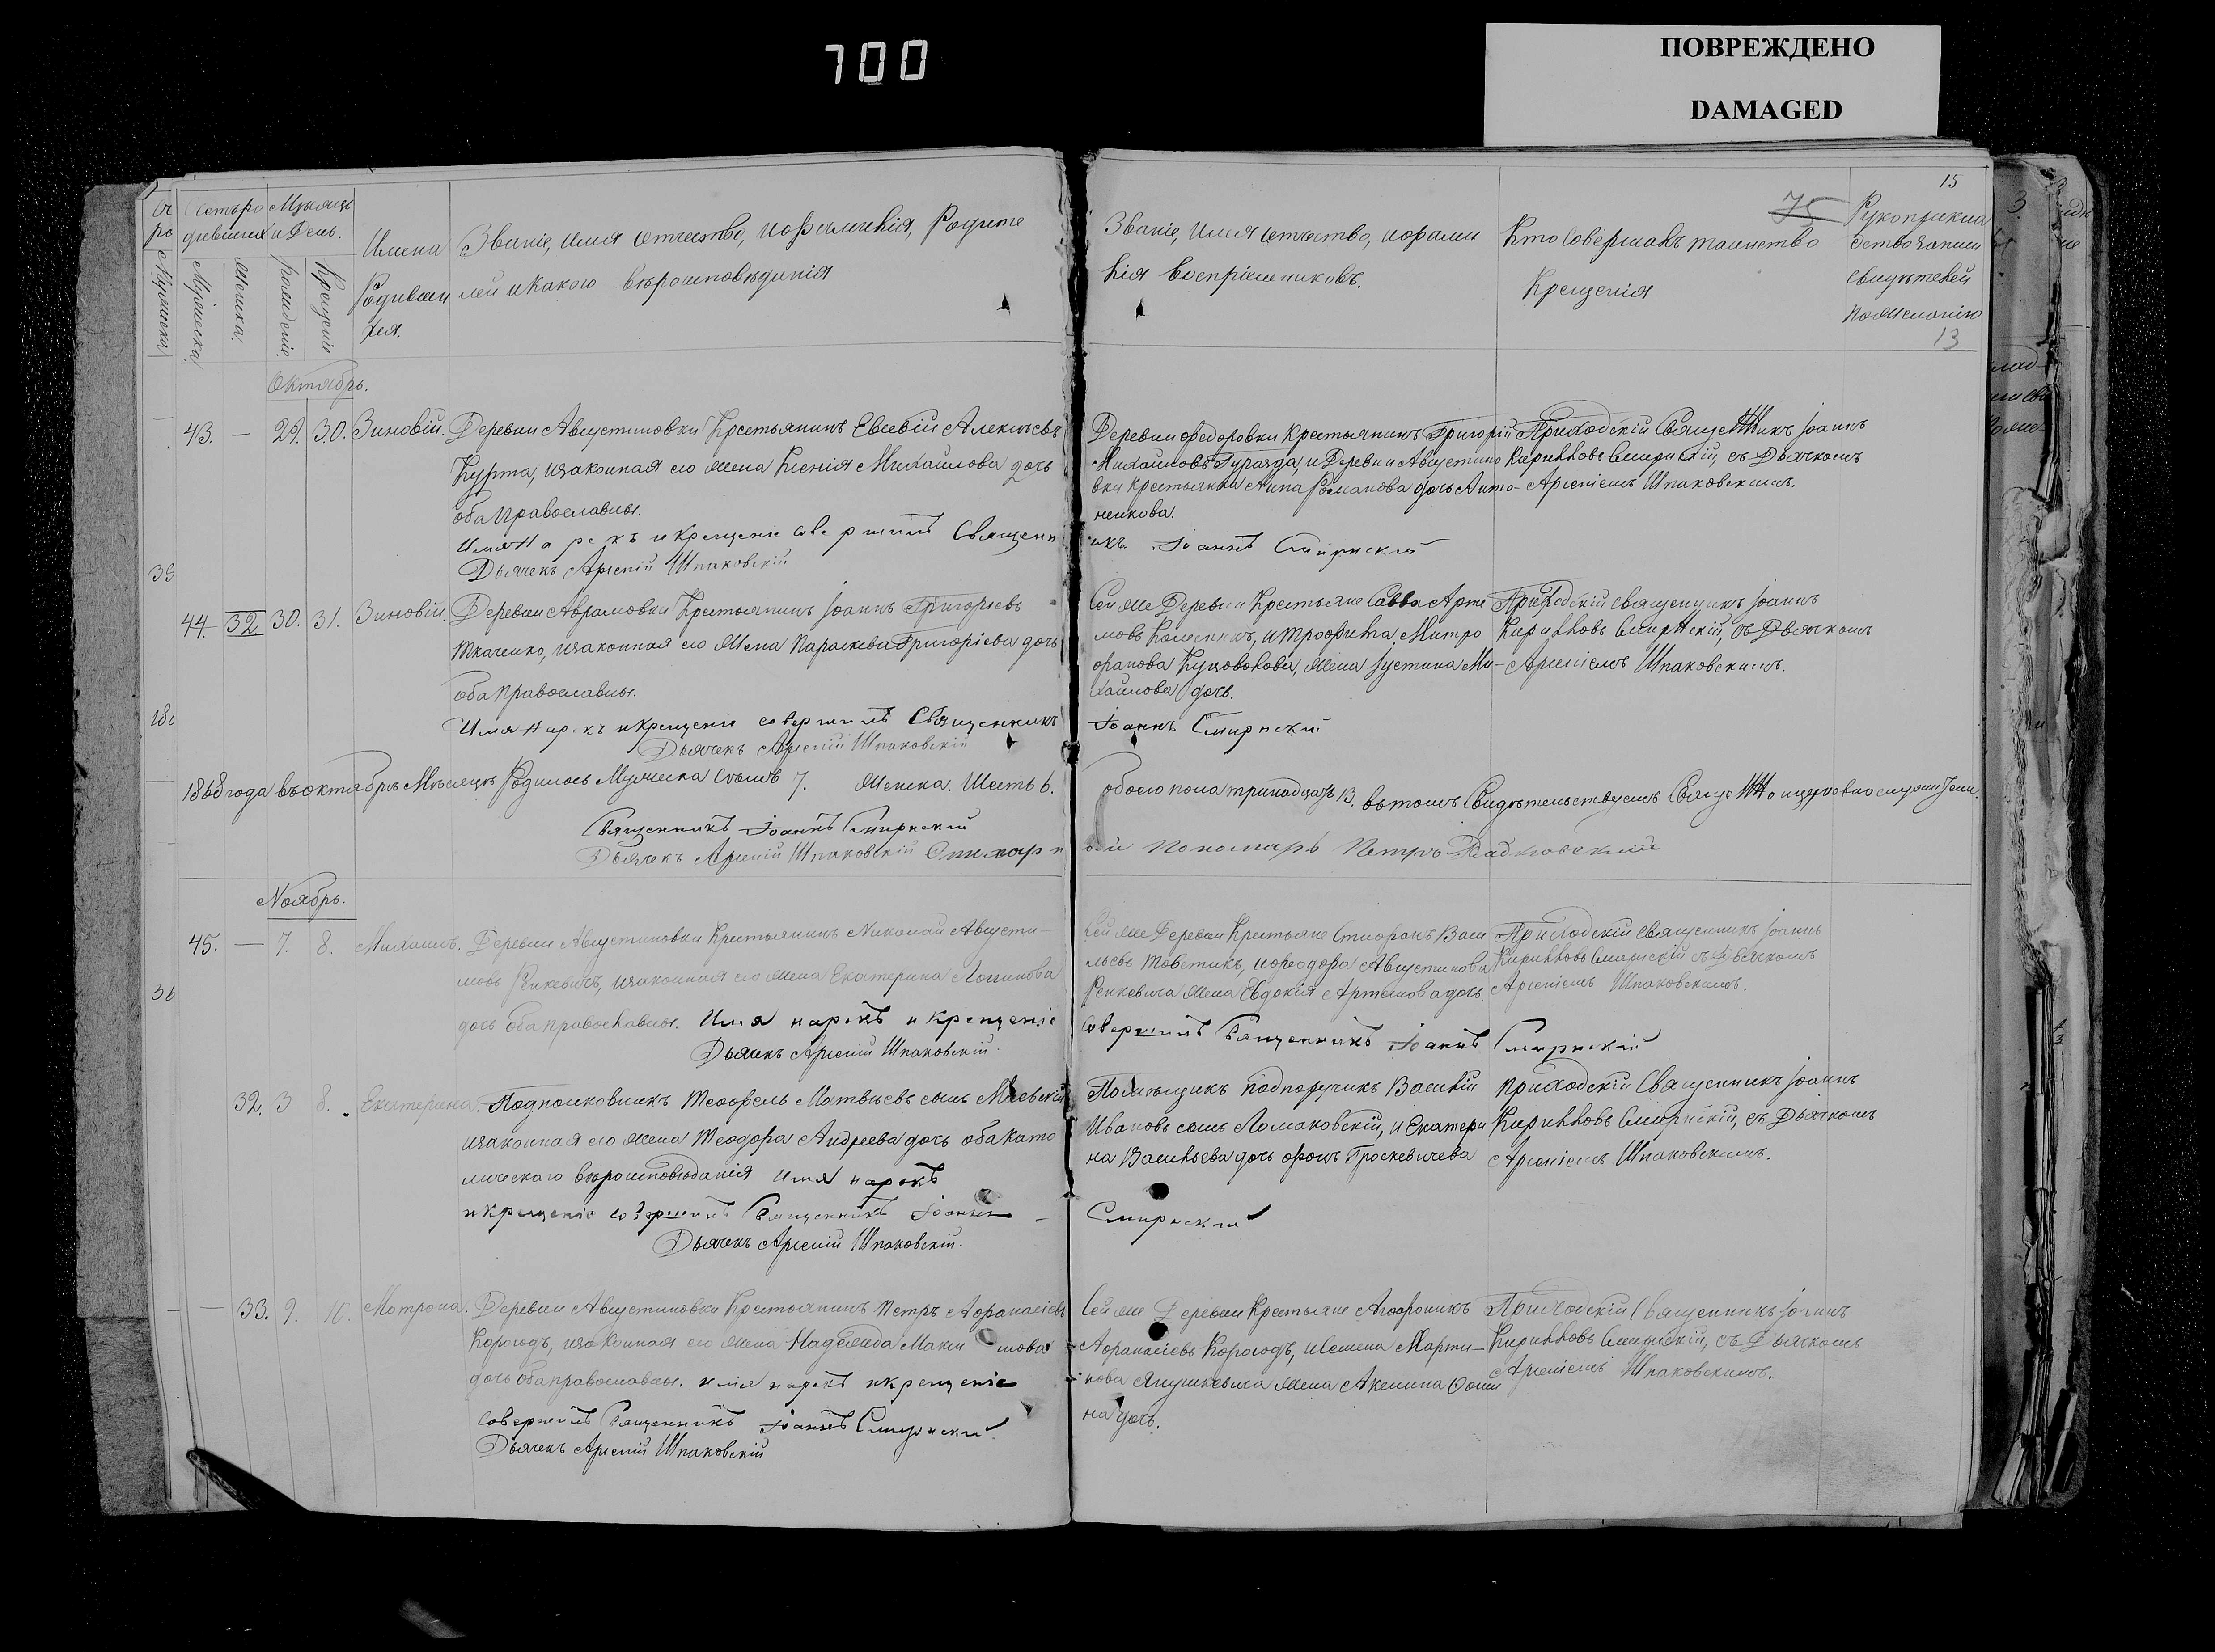 700
ПОВРЕЖДЕНО
DAMAGED
15
75
13
Мѣсяцъ
и День.
Мужеска
Мужеска.
Женска.
рожденіе.
Крещенія
Имена
Родивши
хся.
Званіе, имя отчество, и фамилія, Родите
лей и какого вѣроисповѣданія
Званіе, имя отчество, и фами
лія воспріемниковъ.
Кто совершалъ таинство
Крещенія
Рукоприкла
дство записи
свидѣтелей
по желанію
Октябрь.
43. — 29. 30. Зиновій.
Деревни Августиновки Крестьянинъ Евсевій Алексѣевъ
Курта, и законная его жена Ксенія Михайлова дочь
оба православны.
Имя нарекъ и крещеніе совершилъ Священн
Дьячекъ Арсеній Шпаковскій
Деревни Федоровки Крестьянинъ Григорій
Михайловъ и Деревни Августино
вки Крестьянка Анна Романова дочь Анто-
ненкова.
икъ Іоаннъ Смирнскій
Приходскій Священникъ Іоаннъ
Кирилловъ Смирнскій, съ Дьячкомъ
Арсеніемъ Шпаковскимъ.
39
44. 32 30. 31. Зиновій.
Деревни Аврамовки Крестьянинъ Іоаннъ Григорьевъ
Ткаченко, и законная его жена Параскева Григоріева дочь
оба православны.
Имя нарекъ и крещеніе совершилъ Священникъ
Дьячекъ Арсеній Шпаковскій
Сей же Деревни Крестьяне Савва Арте
мовъ и Трофима Митро
фанова жена Іустина Ми-
хайлова дочь.
Іоаннъ Смирнскій
Приходскій священникъ Іоаннъ
Кирилловъ Смирнскій, съ Дьячкомъ
Арсеніемъ Шпаковскимъ.
1868 года въ октябрѣ Мѣсяцѣ Родилось Мужеска семь 7. Женска. Шесть 6.
обоего пола тринадцать 13. въ томъ Свидѣтельствуемъ
Священникъ Іоаннъ Смирнскій
Дьячекъ Арсеній Шпаковскій
Пономарь Петръ
Ноябрь.
45. — 7. 8. Михаилъ.
Деревни Августиновки Крестьянинъ Николай Августи—
новъ Ренкевичъ, и законная его жена Екатерина Логинова
дочь оба православны. Имя нарекъ и крещеніе
Дьячекъ Арсеній Шпаковскій
Сей же Деревни Крестьяне Стефанъ Васи
льевъ Товстикъ, и Феодора Августинова
Ренкевича жена Евдокія Артемова дочь.
совершилъ Священникъ Іоаннъ Смирнскій
Приходскій священникъ Іоаннъ
Кирилловъ Смирнскій съ Дьячкомъ
Арсеніемъ Шпаковскимъ.
32. 3 8. Екатерина.
Подполковникъ Теофель Матвѣевъ сынъ
и законная его жена Теодора Андреева дочь оба като
лическаго вѣроисповѣданія имя нарекъ
и крещеніе совершилъ Священникъ Іоаннъ —
Дьячекъ Арсеній Шпаковскій.
Помѣщикъ подпоручикъ Василій
Ивановъ сынъ Ломаковскій, и Екатери
на Васильева дочь фонъ
Смирнскій
Приходскій Священникъ Іоаннъ
Кирилловъ Смирнскій, съ Дьячкомъ
Арсеніемъ Шпаковскимъ.
— 33. 9. 10. Мотрона.
Деревни Августиновки Крестьянинъ Петръ Афанасіевъ
Корогодъ, и законная его жена Надежда Макси мова
дочь оба православны. имя нарекъ и крещеніе
совершилъ Священникъ Іоаннъ Смирнскій
Дьячекъ Арсеній Шпаковскій
Сей же Деревни Крестьяне
Афанасіевъ Корогодъ, и Семена Марти—
нова Янушкевича жена Акилина Фоми
на дочь.
Приходскій Священникъ Іоаннъ
Кирилловъ Смирнскій, съ Дьячкомъ
Арсеніемъ Шпаковскимъ.